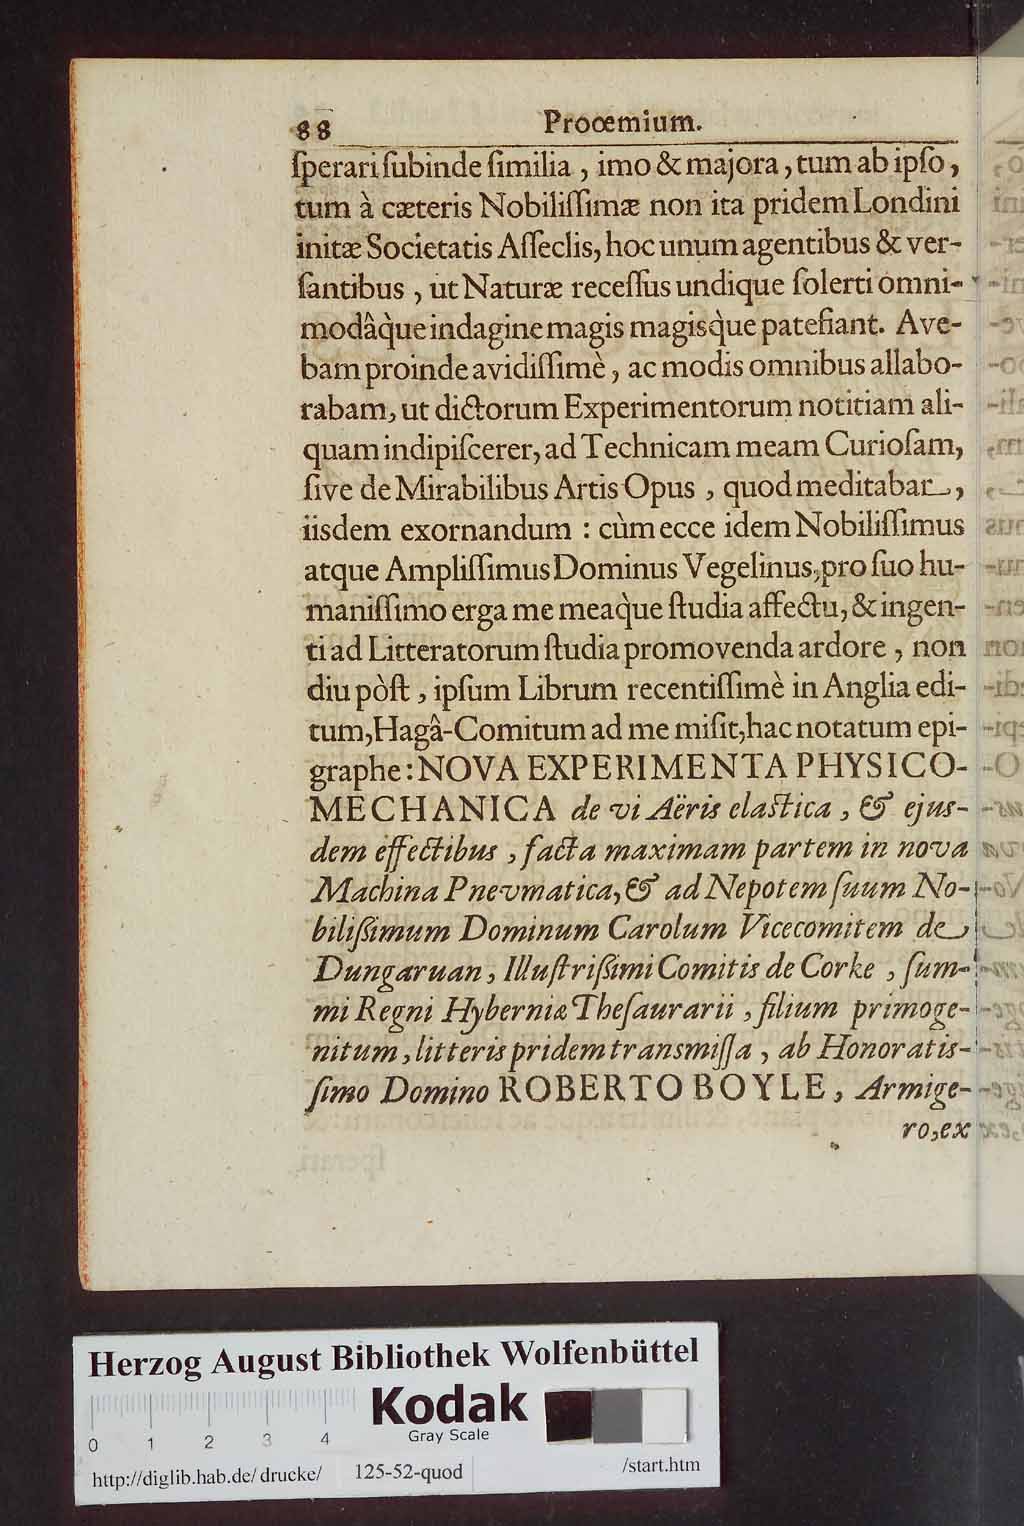 88 Procemium.
ſperari ſubinde ſimilia, imo & majora, tum ab ipſo,
tum à cæteris Nobiliſſimæ non ita pridem Londini
initæ Societatis Aſſeclis, hoc unum agentibus & ver-
ſantibus, ut Naturæ receſſus undique ſolerti omni-
modâq̀ue indagine magis magisq̀ue patefiant. Ave-
bam proinde avidiſſimè, ac modis omnibus allabo-
rabam, ut dictorum Experimentorum notitiam ali-
quam indipiſcerer, ad Technicam meam Curioſam,
ſive de Mirabilibus Artis Opus, quod meditabar,
iisdem exornandum : cùm ecce idem Nobiliſſimus
atque Ampliſſimus Dominus Vegelinus, pro ſuo hu-
maniſſimo erga me meaq̀ue ſtudia affectu, & ingen-
ti ad Litteratorum ſtudia promovenda ardore, non
diu pòſt, ipſum Librum recentiſſimè in Anglia edi-
tum, Hagâ-Comitum ad me miſit, hac notatum epi-
graphe: NOVA EXPERIMENTA PHYSICO-
MECHANICA de vi Aëris elaſtica, & ejus-
dem effectibus, facta maximam partem in nova
Machina Pnevmatica, & ad Nepotem ſuum No-
biliſſimum Dominum Carolum Vicecomitem de
Dungaruan, Illuſtriſſimi Comitis de Corke, ſum-
mi Regni Hyberniæ Theſaurarii, filium primoge-
nitum, litteris pridem transmiſſa, ab Honoratis-
ſimo Domino ROBERTO BOYLE, Armige-
ro, ex
Herzog August Bibliothek Wolfenbüttel
Kodak
Gray Scale
0 1 2 3 4
http://diglib.hab.de/drucke/ 125-52-quod /start.htm